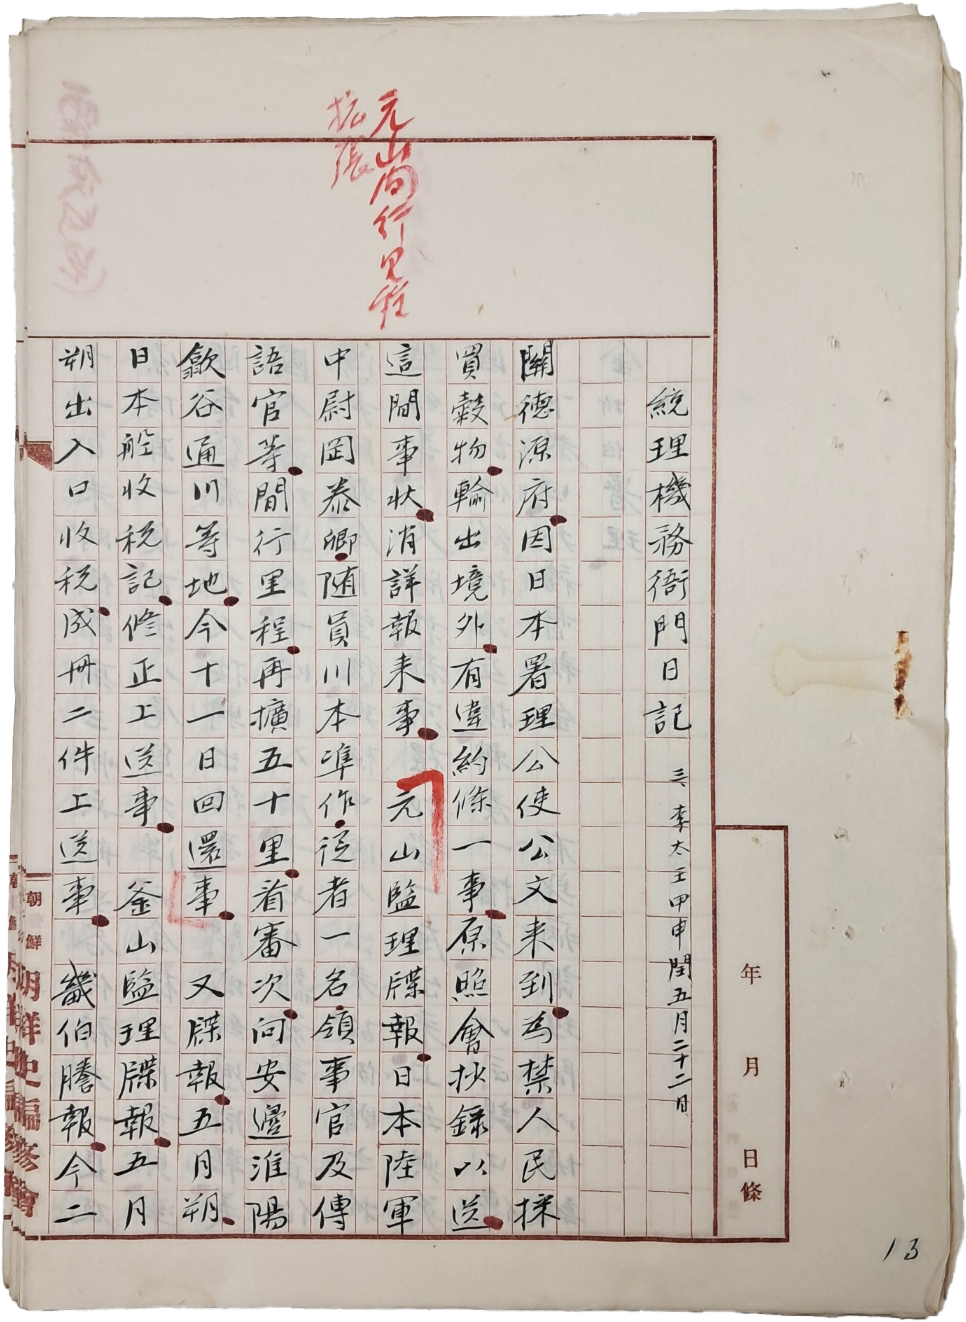 元山間行里程
拡張
統理機務衙門日記 三、李太王甲申閏五月二十二日
關德源府因日本署理公使公文来到為禁人民採
買穀物輸出境外有違約條一事原照會抄録以送
這間事状消詳報来事 元山監理牒報日本陸軍
中尉岡泰卿随員川本準作從者一名領事官及傳
語官等間行里程再擴五十里着審次向安邊淮陽
歙谷通川等地今十一日回還事 又牒報五月朔
日本船收税記修正上送事 釜山監理牒報五月
朔出入口收税成冊二件上送事 畿伯謄報今二
年 月 日條
朝鮮
朝鮮史編修會
13